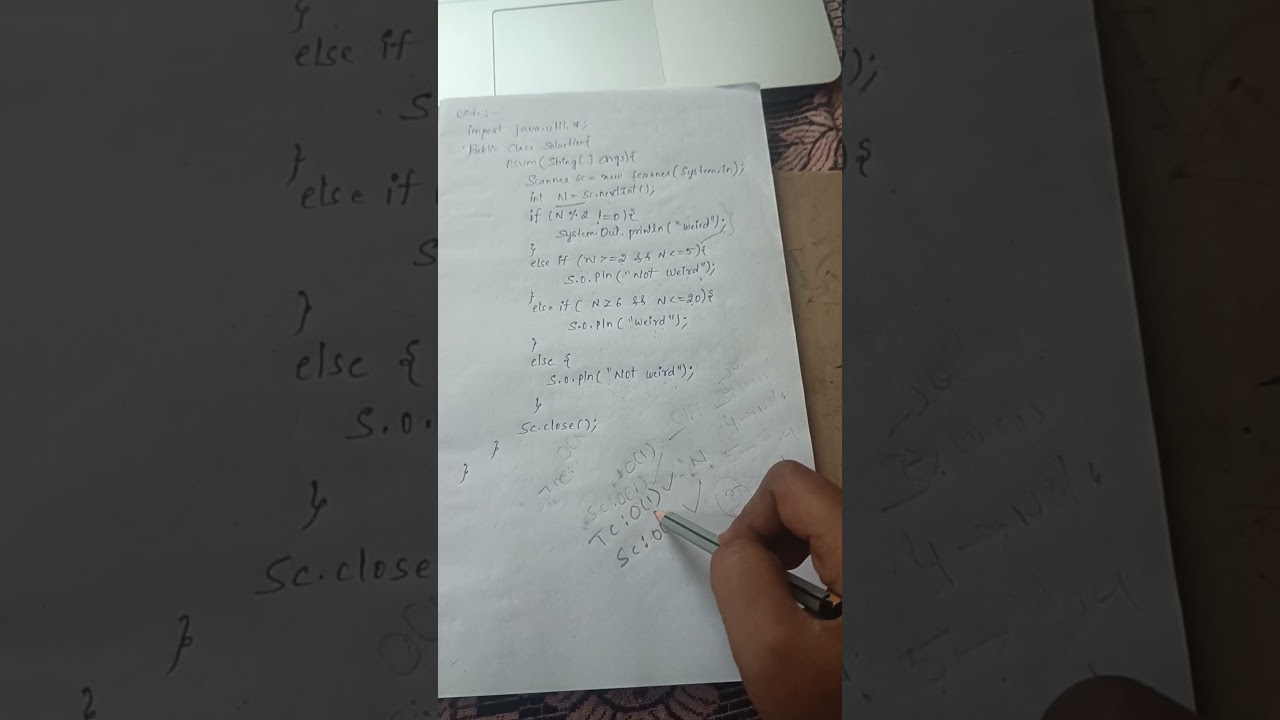 Code:
import java.util.*;
Public Class Solution{
PSVM(String[] args){
Scanner sc = new Scanner(System.in);
int N = sc.nextInt();
if (N % 2 != 0){
System.Out.println("weird");
}
else if (N >= 2 && N <= 5){
S.o.pln("Not weird");
}
else if ( N ≥ 6 && N <= 20){
S.o.pln("weird");
}
else {
S.o.pln("Not weird");
}
Sc.close();
}
}
O(1)
SC:O(1)
N
TC:O(1)
SC:O(